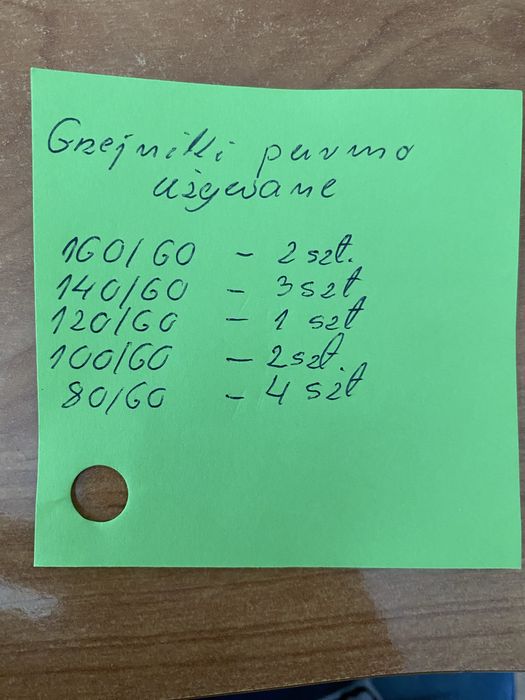 Grzejniki purmo
używane
160/60 - 2 szt.
140/60 - 3 szt
120/60 - 1 szt
100/60 - 2 szt.
80/60 - 4 szt